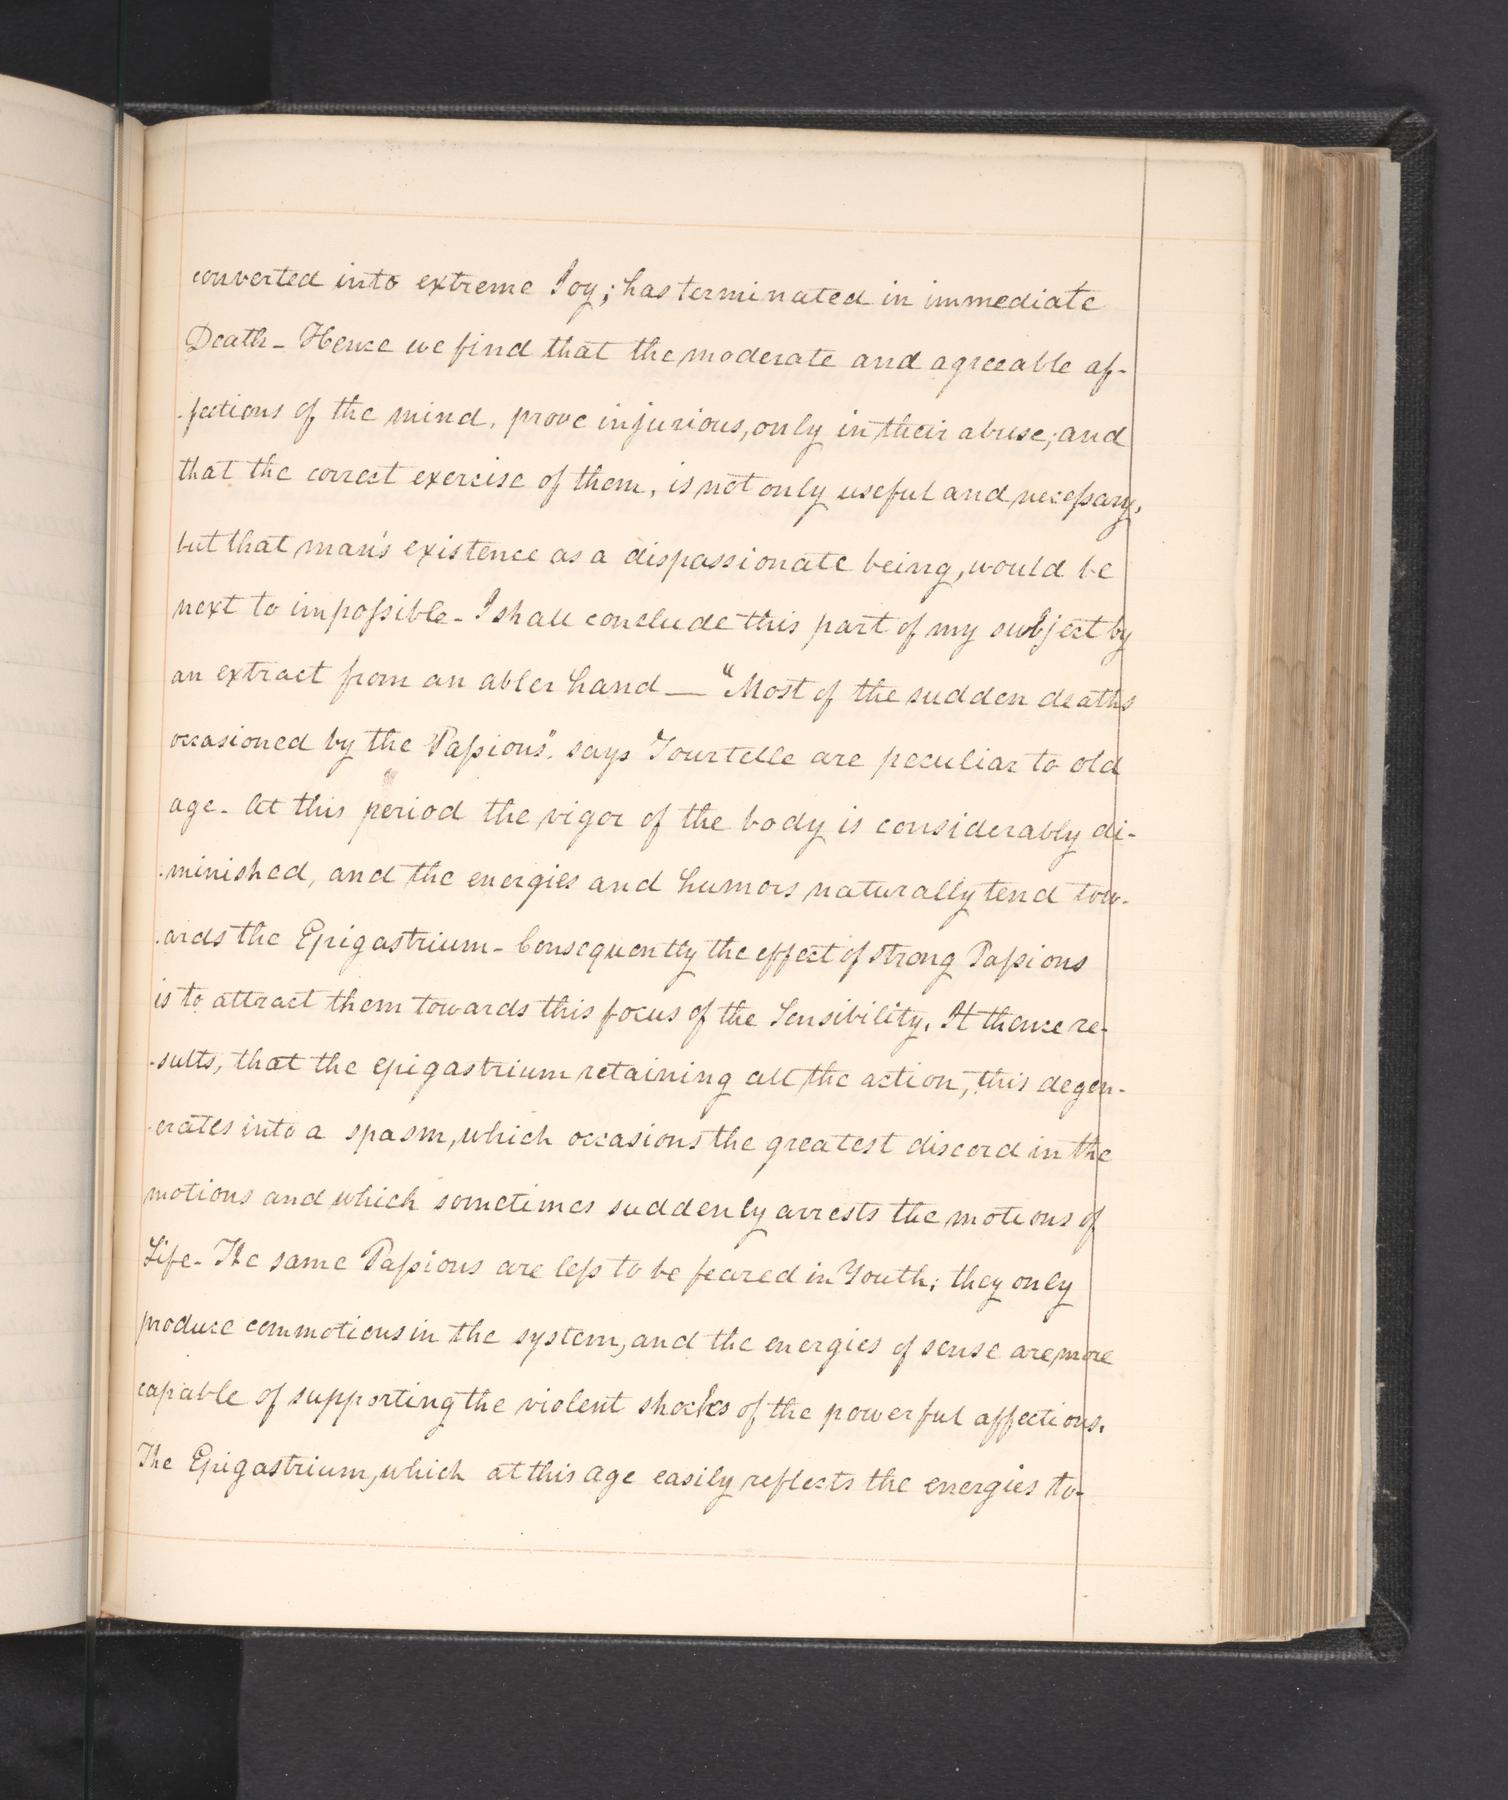 converted into extreme Joy; has terminated in immediate
Death - Hence we find that the moderate and agreeable af-
-fections of the mind, prove injurious, only in their abuse; and
that the correct exercise of them, is not only useful and necessary,
but that man's existence as a dispassionate being, would be
next to impossible - I shall conclude this part of my subject by
an extract from an abler hand — "Most of the sudden deaths
occasioned by the Passions", says Tourtelle are peculiar to old
age - At this period the vigor of the body is considerably di-
-minished, and the energies and humors naturally tend tow-
-ards the Epigastrium - Consequently the effect of strong Passions
is to attract them towards this focus of the Sensibility. It thence re-
-sults, that the epigastrium retaining all the action, this degen-
-erates into a spasm, which occasions the greatest discord in the
motions and which sometimes suddenly arrests the motions of
Life - The same Passions are less to be feared in Youth; they only
produce commotions in the system, and the energies of sense are more
capable of supporting the violent shocks of the powerful affections.
The Epigastrium, which at this age easily reflects the energies to-